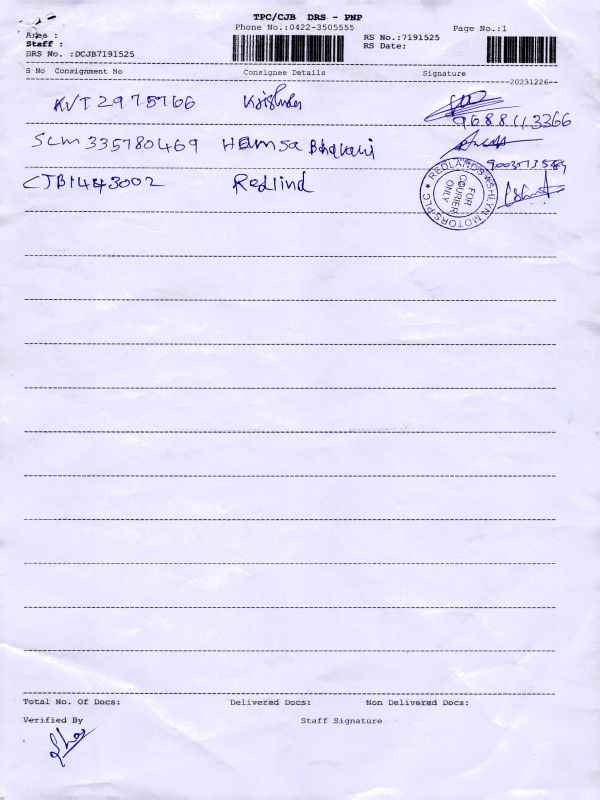 TPC/CJB DRS - PNP
Phone No.:0422-3505555 Page No.:1
Area :
Staff :
DRS No. :DCJB7191525
RS No.:7191525
RS Date:
S No Consignment No Consignee Details Signature
20231226
KVT2975766
9688113366
SLM335780469 Hamsa
CJB1443002 Redlind
REDLANDS ASHLYN MOTORS PLC
FOR COURIER ONLY
Total No. Of Docs: Delivered Docs: Non Delivered Docs:
Verified By Staff Signature